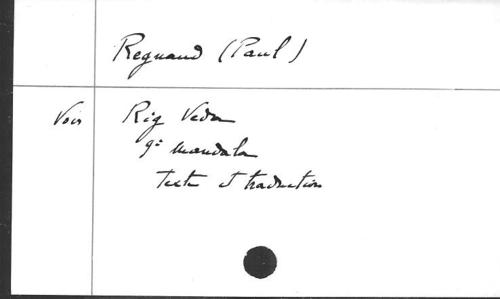 Regnaud (Paul)
Voir Rig Veda
9e mandala
Texte et traduction